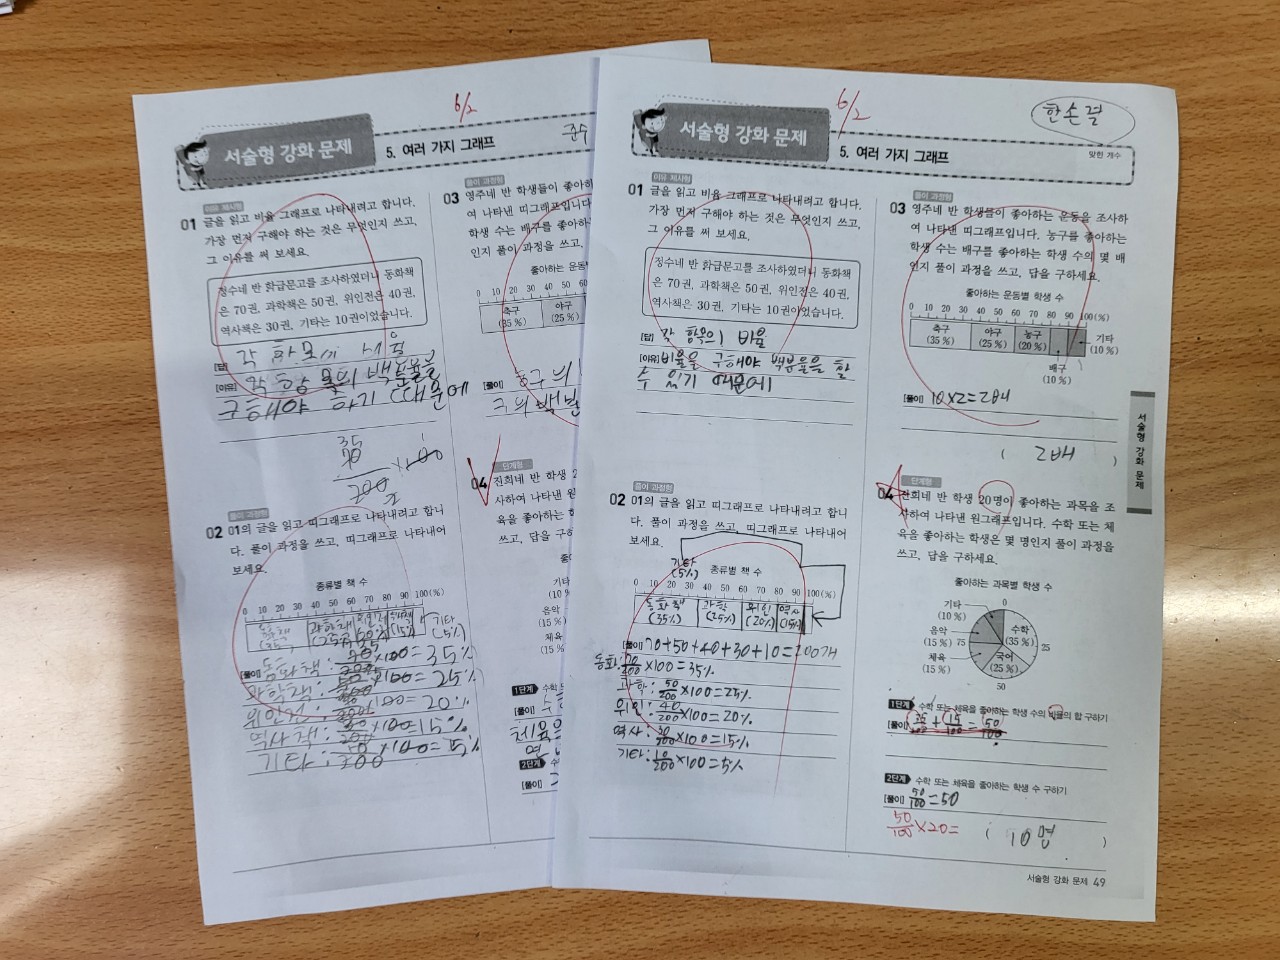 6/2
서술형 강화 문제
5. 여러 가지 그래프
준수
이유 제시형
01 글을 읽고 비율 그래프로 나타내려고 합니다.
가장 먼저 구해야 하는 것은 무엇인지 쓰고,
그 이유를 써 보세요.
정수네 반 학급문고를 조사하였더니 동화책
은 70권, 과학책은 50권, 위인전은 40권,
역사책은 30권, 기타는 10권이었습니다.
[답] 각 항목의
[이유] 각 항목의 백분율을
구해야 하기 때문에
35
70
200
2
×100
1
풀이 과정형
02 01의 글을 읽고 띠그래프로 나타내려고 합니
다. 풀이 과정을 쓰고, 띠그래프로 나타내어
보세요.
종류별 책 수
0 10 20 30 40 50 60 70 80 90 100(%)
기타
(5%)
[풀이] 동화책: ×100=35%
과학책: ×100=25%
위인전: ×100=20%
역사책: ×100=15%
기타: ×100=5%
풀이 과정형
03 영주네 반 학생들이 좋아하
여 나타낸 띠그래프입니다
학생 수는 배구를 좋아하
인지 풀이 과정을 쓰고,
좋아하는 운동
0 10 20 30 40 50 60
축구
(35 %)
야구
(25 %)
[풀이] 농구의
구의 백분
단계형
04 진희네 반 학생 2
사하여 나타낸 원
육을 좋아하는 학
쓰고, 답을 구하세요
좋아
기타
(10 %
음악
(15 %)
체육
(15 %)
1단계 수학 또
[풀이]
체육
2단계 수
[풀이]
6/2
한손열
서술형 강화 문제
5. 여러 가지 그래프
맞힌 개수
이유 제시형
01 글을 읽고 비율 그래프로 나타내려고 합니다.
가장 먼저 구해야 하는 것은 무엇인지 쓰고,
그 이유를 써 보세요.
정수네 반 학급문고를 조사하였더니 동화책
은 70권, 과학책은 50권, 위인전은 40권,
역사책은 30권, 기타는 10권이었습니다.
[답] 각 항목의 비율
[이유] 비율을 구해야 백분율을 할
수 있기 때문에
풀이 과정형
02 01의 글을 읽고 띠그래프로 나타내려고 합니
다. 풀이 과정을 쓰고, 띠그래프로 나타내어
보세요.
기타
(5%)
종류별 책 수
0 10 20 30 40 50 60 70 80 90 100(%)
동화책
(35%)
과학
(25%)
위인
(20%)
역사
(15%)
[풀이] 70+50+40+30+10=200개
동화: 70/200×100=35%
과학: 50/200×100=25%
위인: 40/200×100=20%
역사: 30/200×100=15%
기타: 10/200×100=5%
풀이 과정형
03 영주네 반 학생들이 좋아하는 운동을 조사하
여 나타낸 띠그래프입니다. 농구를 좋아하는
학생 수는 배구를 좋아하는 학생 수의 몇 배
인지 풀이 과정을 쓰고, 답을 구하세요.
좋아하는 운동별 학생 수
0 10 20 30 40 50 60 70 80 90 100(%)
축구
(35 %)
야구
(25 %)
농구
(20 %)
기타
(10 %)
배구
(10 %)
[풀이] 10×2=2배
( 2배 )
단계형
04 진희네 반 학생 20명이 좋아하는 과목을 조
사하여 나타낸 원그래프입니다. 수학 또는 체
육을 좋아하는 학생은 몇 명인지 풀이 과정을
쓰고, 답을 구하세요.
좋아하는 과목별 학생 수
0
기타
(10 %)
음악
(15 %)
75
체육
(15 %)
수학
(35 %)
25
국어
(25 %)
50
1단계 수학 또는 체육을 좋아하는 학생 수의 비율의 합 구하기
[풀이] 35/100+15/100=50/100
2단계 수학 또는 체육을 좋아하는 학생 수 구하기
[풀이] 50/100=50
50/100×20=
( 10명 )
서술형 강화 문제
서술형 강화 문제 49